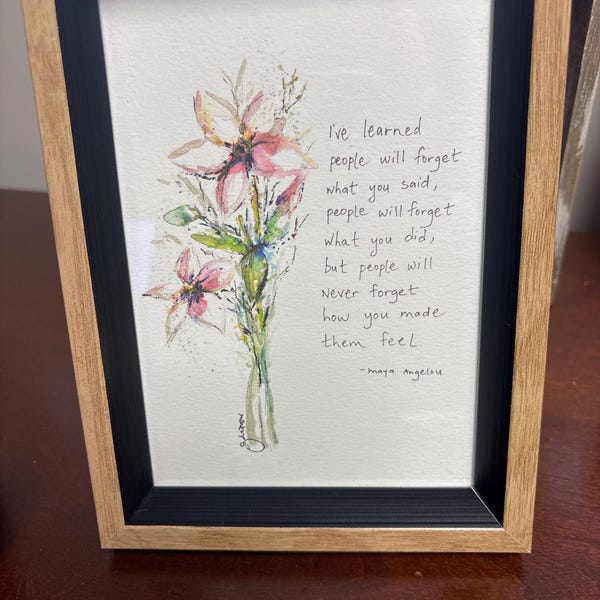 I've learned
people will forget
what you said,
people will forget
what you did,
but people will
never forget
how you made
them feel.
-maya Angelou